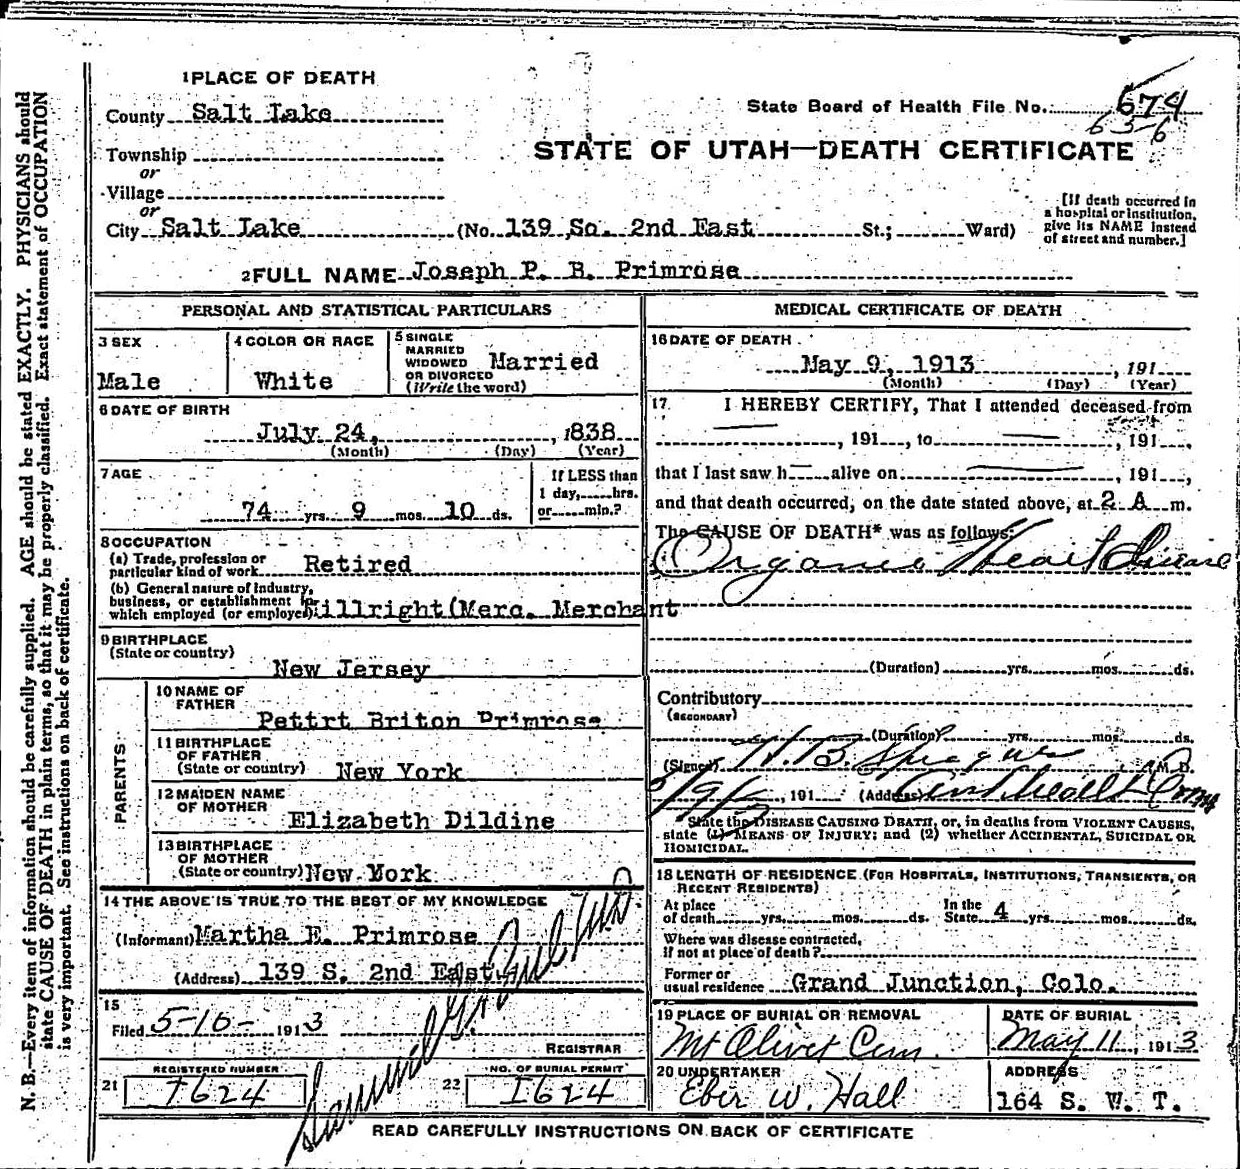 1 PLACE OF DEATH
County Salt Lake
State Board of Health File No. 674
63-6
Township
or
STATE OF UTAH—DEATH CERTIFICATE
Village
or
City Salt Lake (No. 139 So. 2nd East St.; Ward)
[If death occurred in
a hospital or institution,
give its NAME instead
of street and number.]
2 FULL NAME Joseph P. B. Primrose
PERSONAL AND STATISTICAL PARTICULARS
3 SEX
Male
4 COLOR OR RACE
White
5 SINGLE
MARRIED
WIDOWED
OR DIVORCED
(Write the word)
Married
6 DATE OF BIRTH
July 24, , 1838
(Month) (Day) (Year)
7 AGE
74 yrs. 9 mos. 10 ds.
If LESS than
1 day, hrs.
or min.?
8 OCCUPATION
(a) Trade, profession or
particular kind of work Retired
(b) General nature of industry,
business, or establishment in
which employed (or employer) Millright (Merc. Merchant
9 BIRTHPLACE
(State or country)
New Jersey
PARENTS
10 NAME OF
FATHER
Pettrt Briton Primrose
11 BIRTHPLACE
OF FATHER
(State or country) New York
12 MAIDEN NAME
OF MOTHER
Elizabeth Dildine
13 BIRTHPLACE
OF MOTHER
(State or country) New York
14 THE ABOVE IS TRUE TO THE BEST OF MY KNOWLEDGE
(Informant) Martha E. Primrose
(Address) 139 S. 2nd East
15
Filed 5-10- 1913
REGISTRAR
21 REGISTERED NUMBER
I624
22 NO. OF BURIAL PERMIT
I624
MEDICAL CERTIFICATE OF DEATH
16 DATE OF DEATH
May 9, 1913 , 191
(Month) (Day) (Year)
17 I HEREBY CERTIFY, That I attended deceased from
, 191 , to , 191 ,
that I last saw h alive on , 191 ,
and that death occurred, on the date stated above, at 2 A m.
The CAUSE OF DEATH* was as follows:
Organic Heart Disease
(Duration) yrs. mos. ds.
Contributory
(SECONDARY)
(Duration) yrs. mos. ds.
(Signed) H. B. Sprague M.D.
5/9/ , 191 (Address)
*State the DISEASE CAUSING DEATH, or, in deaths from VIOLENT CAUSES,
state (1) MEANS OF INJURY; and (2) whether ACCIDENTAL, SUICIDAL OR
HOMICIDAL.
18 LENGTH OF RESIDENCE (FOR HOSPITALS, INSTITUTIONS, TRANSIENTS, OR
RECENT RESIDENTS)
At place
of death yrs. mos. ds.
In the
State 4 yrs. mos. ds.
Where was disease contracted,
if not at place of death?
Former or
usual residence Grand Junction, Colo.
19 PLACE OF BURIAL OR REMOVAL
Mt Olivet Cem.
DATE OF BURIAL
May 11, 1913
20 UNDERTAKER
Eber W. Hall
ADDRESS
164 S. W. T.
READ CAREFULLY INSTRUCTIONS ON BACK OF CERTIFICATE
N. B.—Every item of information should be carefully supplied. AGE should be stated EXACTLY. PHYSICIANS should
state CAUSE OF DEATH in plain terms, so that it may be properly classified. Exact statement of OCCUPATION
is very important. See instructions on back of certificate.